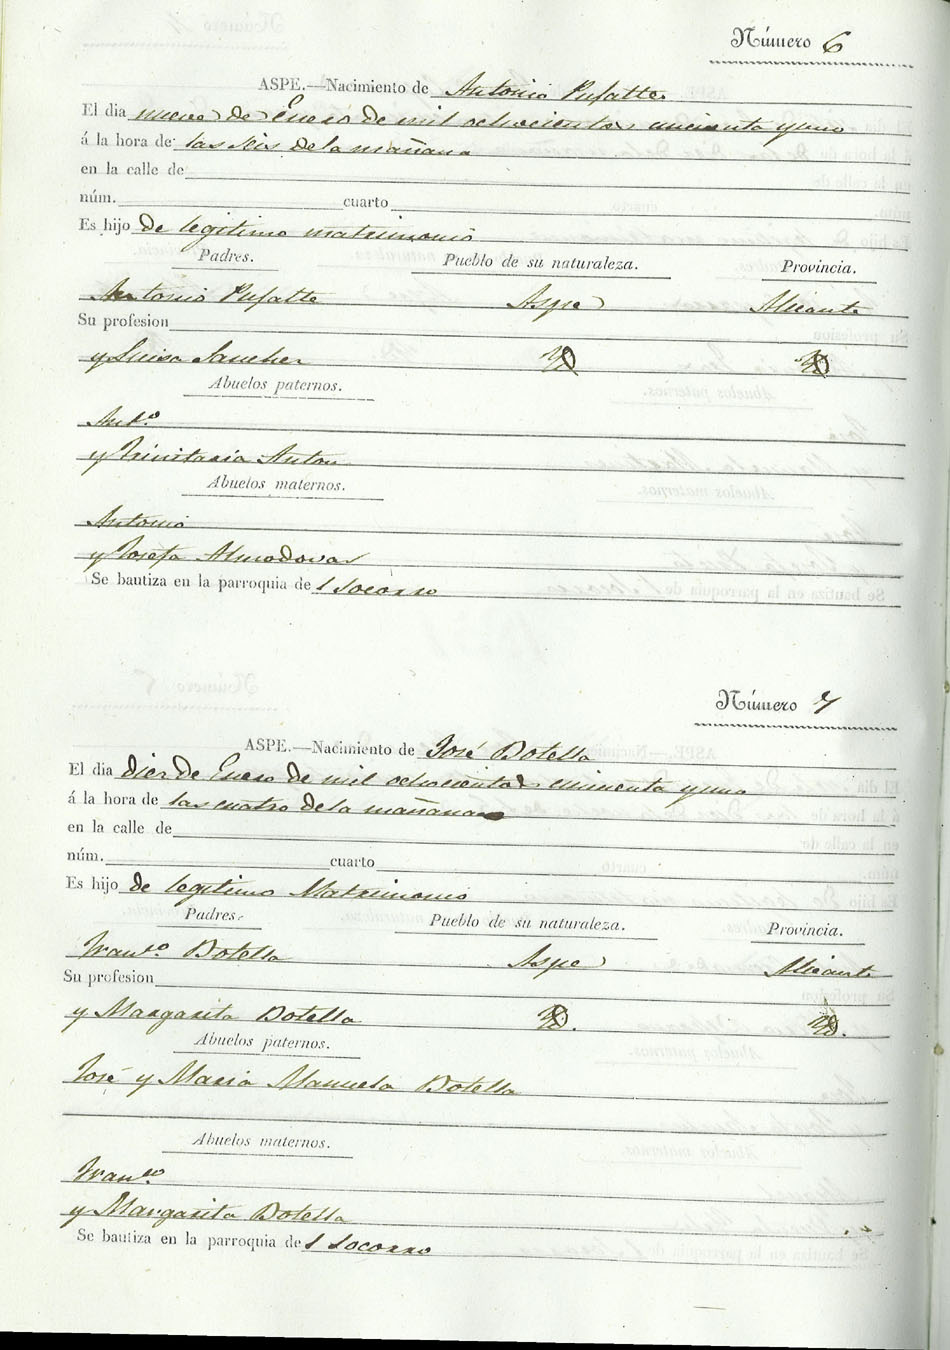 Número 6
ASPE.—Nacimiento de Antonio Pujalte
El dia nueve de Enero de mil ochocientos cincuenta y uno
á la hora de las seis de la mañana
en la calle de
núm. cuarto
Es hijo de legitimo matrimonio
Padres. Pueblo de su naturaleza. Provincia.
Antonio Pujalte Aspe Alicante
Su profesion
y Luisa Sanchez
Abuelos paternos.
Ant.º
y Trinitaria Anton
Abuelos maternos.
Antonio
y Josefa Almodovar
Se bautiza en la parroquia del Socorro
Número 7
ASPE.—Nacimiento de José Botella
El dia diez de Enero de mil ochocientos cincuenta y uno
á la hora de las cuatro de la mañana
en la calle de
núm. cuarto
Es hijo de legitimo Matrimonio
Padres. Pueblo de su naturaleza. Provincia.
Fran.co Botella Aspe Alicante
Su profesion
y Margarita Botella
Abuelos paternos.
José y Maria Manuela Botella
Abuelos maternos.
Fran.co
y Margarita Botella
Se bautiza en la parroquia del Socorro